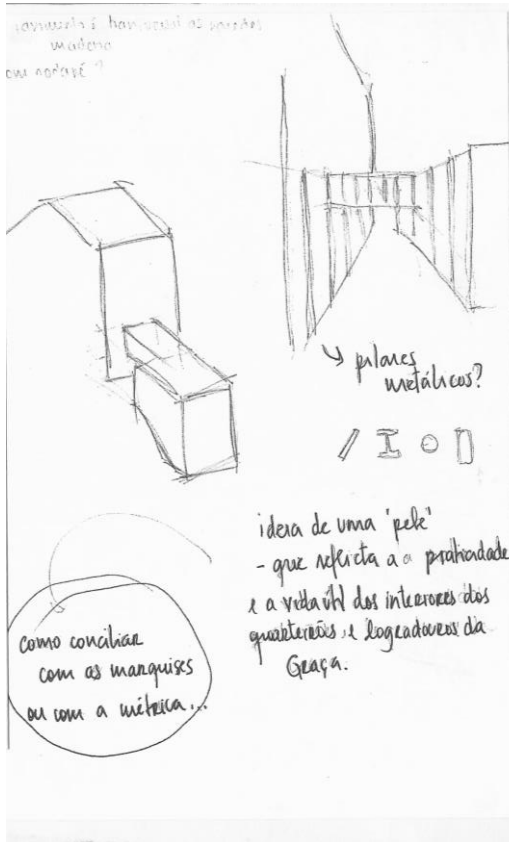 pilares
metálicos?
ideia de uma 'pele'
- que reflicta a a praticidade
e a vida útil dos interiores dos
quarteirões, e logradouros da
Graça.
como conciliar
com as marquises
ou com a métrica...